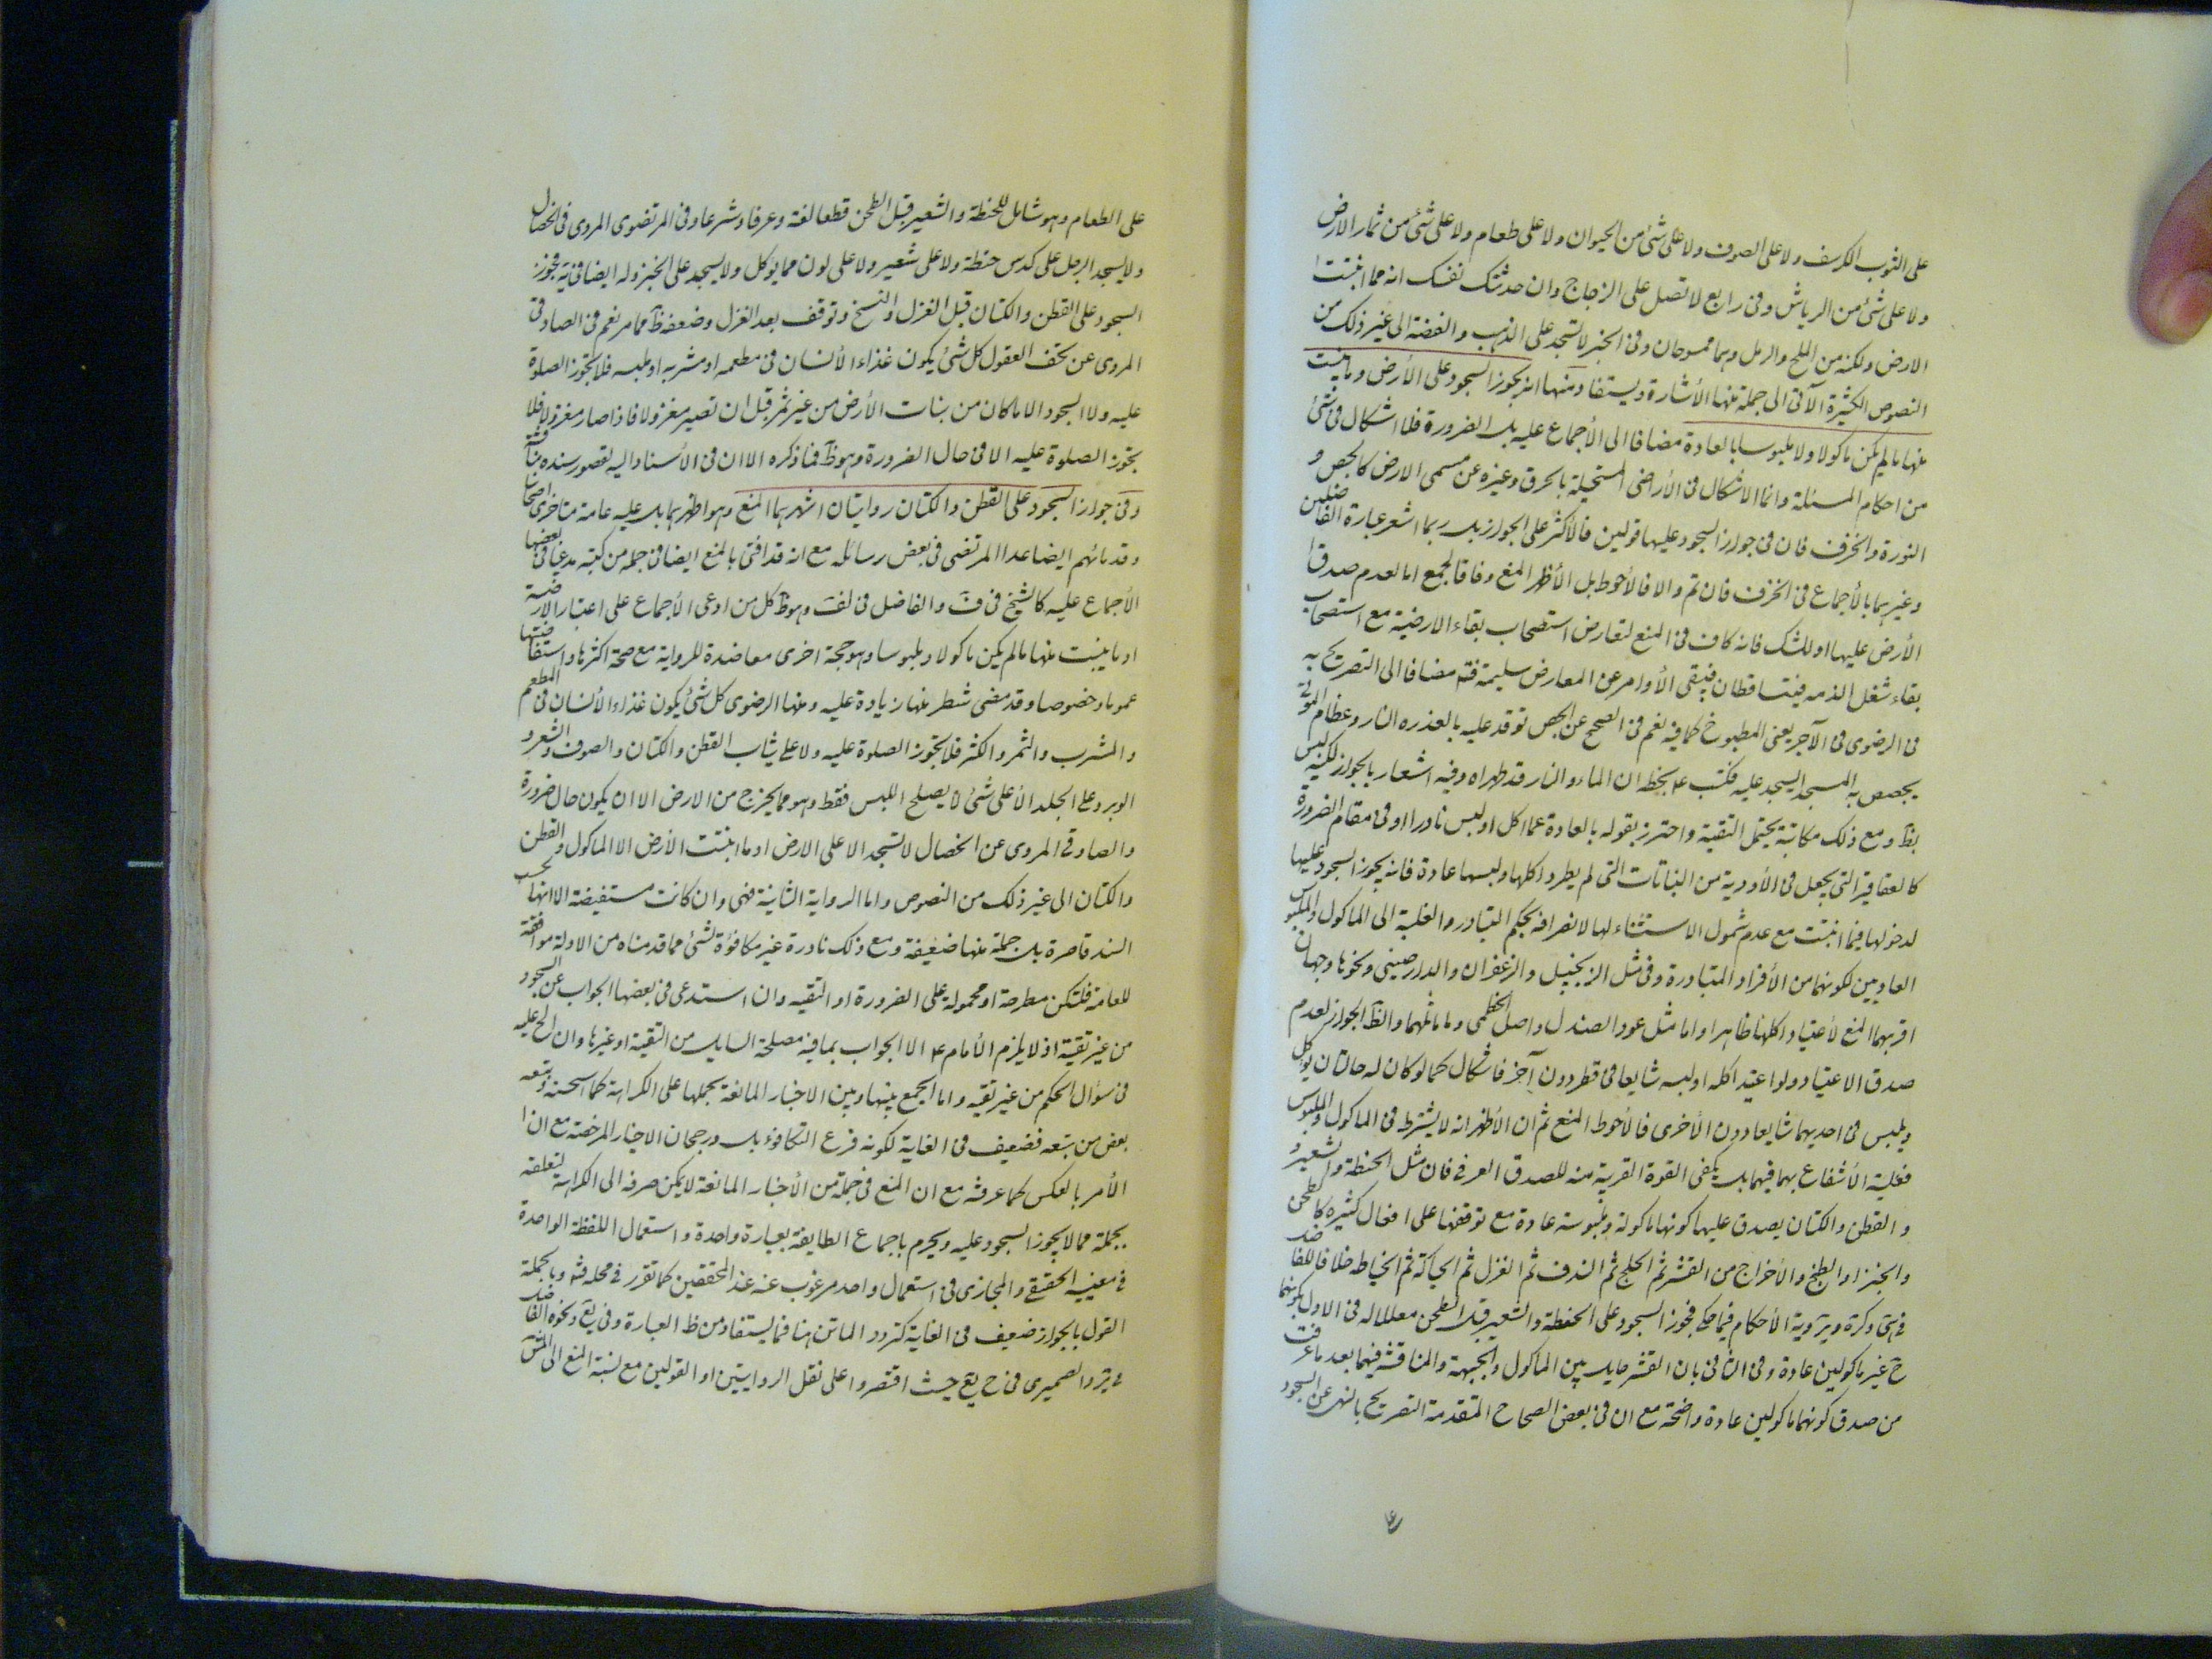 على الثوب الكرسف ولا على الصوف ولا على شئ من الحيوان ولا على طعام ولا على شئ من ثمار الارض
ولا على شئ من الرياش وفى رابع لا تصل على الزجاج وان حدثتك نفسك انه مما انبتت
الارض ولكنه من الملح والرمل وهما ممسوخان وفى الخبر لا تسجد على الذهب والفضة الى غير ذلك من
النصوص الكثيرة الآتى الى جملة منها الأشارة ويستفاد منها انه يجوز السجود على الأرض وما ينبت
منها ما لم يكن ماكولا ولا ملبوسا بالعادة مضافا الى الأجماع عليه بل الضرورة فلا اشكال فى شئ
من احكام المسئلة وانما الاشكال فى الأراضى المستحيلة بالحرق وغيره عن مسمى الارض كالجص و
النورة والخزف فان فى جواز السجود عليها قولين فالاكثر على الجواز بل ربما اشعر عبارة الفاضلين
وغيرهما بالأجماع فى الخزف فان تم والا فالأحوط بل الأظهر المنع وفاقا لجمع اما لعدم صدق
الأرض عليها او للشك فانه كاف فى المنع لتعارض استصحاب بقاء الارضية مع استصحاب
بقاء شغل الذمه فيتساقطان فيبقى الأوامر عن المعارض سليمة فتم مضافا الى التصريح به
فى الرضوى فى الآجر يعنى المطبوخ كما فيه نعم فى الصحيح عن الجص توقد عليه بالعذره النار وعظام الموتى
يجصص به المسجد ايسجد عليه فكتب ع بخطه ان الماء والنار قد طهراه وفيه اشعار بالجواز لكنه ليس
بظ ومع ذلك مكاتبة يحتمل التقية واحترز بقوله بالعادة عما اكل او لبس نادرا او فى مقام الضرورة
كالعقاقير التى يجعل فى الأدوية من النباتات التى لم يطرد اكلها ولبسها عادة فانه يجوز السجود عليها
لدخولها فيما انبتت مع عدم شمول الاستثناء لها لانصرافه بحكم التبادر والغلبة الى الماكول والملبوس
العاديين لكونهما من الأفراد المتبادرة وفى مثل الزنجبيل والزعفران والدارصينى ونحوها وجهان
اقربهما المنع لأعتياد اكلها ظاهرا واما مثل عود الصندل واصل الخطمى وما ماثلهما والظ الجواز لعدم
صدق الاعتياد ولو اعتيد اكله او لبسه شايعا فى قطر دون آخر فاشكال كما لو كان له حالتان يوكل
ويلبس فى احديهما شايعا دون الأخرى فالأحوط المنع ثم ان الأظهر انه لا يشترط فى الماكول والملبوس
فعلية الأنتفاع بهما فيهما بل يكفى القوة القريبة منه للصدق العرفى فان مثل الحنطة والشعير و
والقطن والكتان يصدق عليها كونها ماكولة وملبوسة عادة مع توقفها على افعال كثيرة كالطحن
والخبز او الطبخ والأخراج من القشر ثم الحلج ثم الندف ثم الغزل ثم الحياكة ثم الخياطه خلافا للفاضل
فى هى وكرة ويروية الأحكام فيما حكى فجوز السجود على الحنطة والشعير قبل الطحن معللا له فى الاول بكونهما
ح غير ماكولين عادة وفى الثانى بان القشر حايل بين الماكول والجبهة والمناقشة فيهما بعد ما عرفت
من صدق كونهما ماكولين عادة واضحة مع ان فى بعض الصحاح المتقدمة التصريح بالنهى عن السجود
على الطعام وهو شامل للحنطة والشعير قبل الطحن قطعا لغة وعرفا وشرعا وفى المرتضوى المروى فى الخصال
ولا يسجد الرجل على كدس حنطة ولا على شعير ولا على لون مما يؤكل ولا يسجد على الخبز وله ايضا فى ية فجوز
السجود على القطن والكتان قبل الغزل والنسخ وتوقف بعد الغزل وضعفه ظ مما مر نعم فى الصادقى
المروى عن تحف العقول كل شئ يكون غذاء الأنسان فى مطعمه او مشربه او ملبسه فلا تجوز الصلوة
عليه ولا السجود الا ما كان من بنات الأرض من غير ثمر قبل ان تصير مغزولا فاذا صار مغزولا فلا
تجوز الصلوة عليه الا فى حال الضرورة وهو ظ فيما ذكره الا ان فى الأستناد اليه لقصور سنده مناقشة
وفى جواز السجود على القطن والكتان روايتان اشهرهما المنع وهو اظهرهما بل عليه عامة متاخرى اصحابنا
وقدمائهم ايضا عدا المرتضى فى بعض رسائله مع انه قد افتى بالمنع ايضا فى جملة من كتبه مدعيا فى بعضها
الأجماع عليه كالشيخ فى ف والفاضل فى لف وهو ظ كل من ادعى الأجماع على اعتبار الارضية
او ما ينبت منها ما لم يكن ماكولا وملبوسا وهو حجة اخرى معاضدة للرواية مع صحة اكثرها واستفاضتها
عموما وخصوصا وقد مضى شطر منها زيادة عليه ومنها الرضوى كل شئ يكون غذاء الأنسان فى المطعم
والمشرب والثمر والكثر فلا تجوز الصلوة عليه ولا على ثياب القطن والكتان والصوف والشعر و
الوبر وعلى الجلد الأعلى شئ لا يصلح اللبس فقط وهو مما يخرج من الارض الا ان يكون حال ضرورة
والصادقى المروى عن الخصال لا تسجد الا على الارض او ما انبتت الأرض الا الماكول والقطن
والكتان الى غير ذلك من النصوص واما الرواية الثانية فهى وان كانت مستفيضة الا انها بحسب
السند قاصرة بل جملة منها ضعيفة ومع ذلك نادرة غير مكافؤة لشئ مما قدمناه من الادلة موافقة
للعامة فلتكن مطرحة او محمولة على الضرورة او التقيه وان استدعى فى بعضها الجواب عن السجود
من غير تقية اذ لا يلزم الأمام ع الا الجواب بما فيه مصلحة السايل من التقية او غيرها وان الح عليه
فى سؤال الحكم من غير تقيه واما الجمع بينها وبين الاخبار المانعة بحملها على الكراهة كما استحسنه وتبعه
بعض من تبعه فضعيف فى الغاية لكونه فرع التكافؤ بل ورجحان الاخبار المرخصة مع ان
الأمر بالعكس كما عرفته مع ان المنع فى جملة من الأخبار المانعة لا يمكن صرفه الى الكراهة لتعلقه
بجملة مما لا يجوز السجود عليه ويحرم باجماع الطايفة بعبارة واحدة واستعمال اللفظة الواحدة
فى معنييه الحقيقى والمجازى فى استعمال واحد مرغوب عنه عند المحققين كما تقرر فى محله فثم وبالجملة
القول بالجواز ضعيف فى الغاية كتردد الماتن هنا فيما يستفاد من ظ العبارة وفى يع ونحوه الفاضل
فى ير والصميرى فى ح يع حيث اقتصروا على نقل الروايتين او القولين مع نسبة المنع الى المش